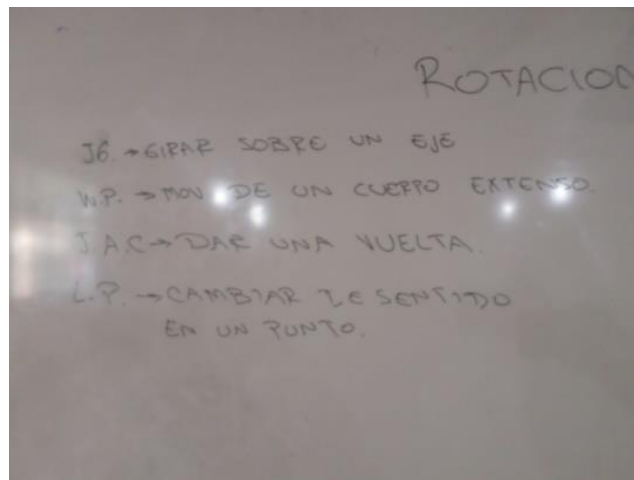 ROTACION
JG. → GIRAR SOBRE UN EJE
W.P. → MOV DE UN CUERPO EXTENSO.
J.A.C → DAR UNA VUELTA.
L.P. → CAMBIAR DE SENTIDO
EN UN PUNTO.